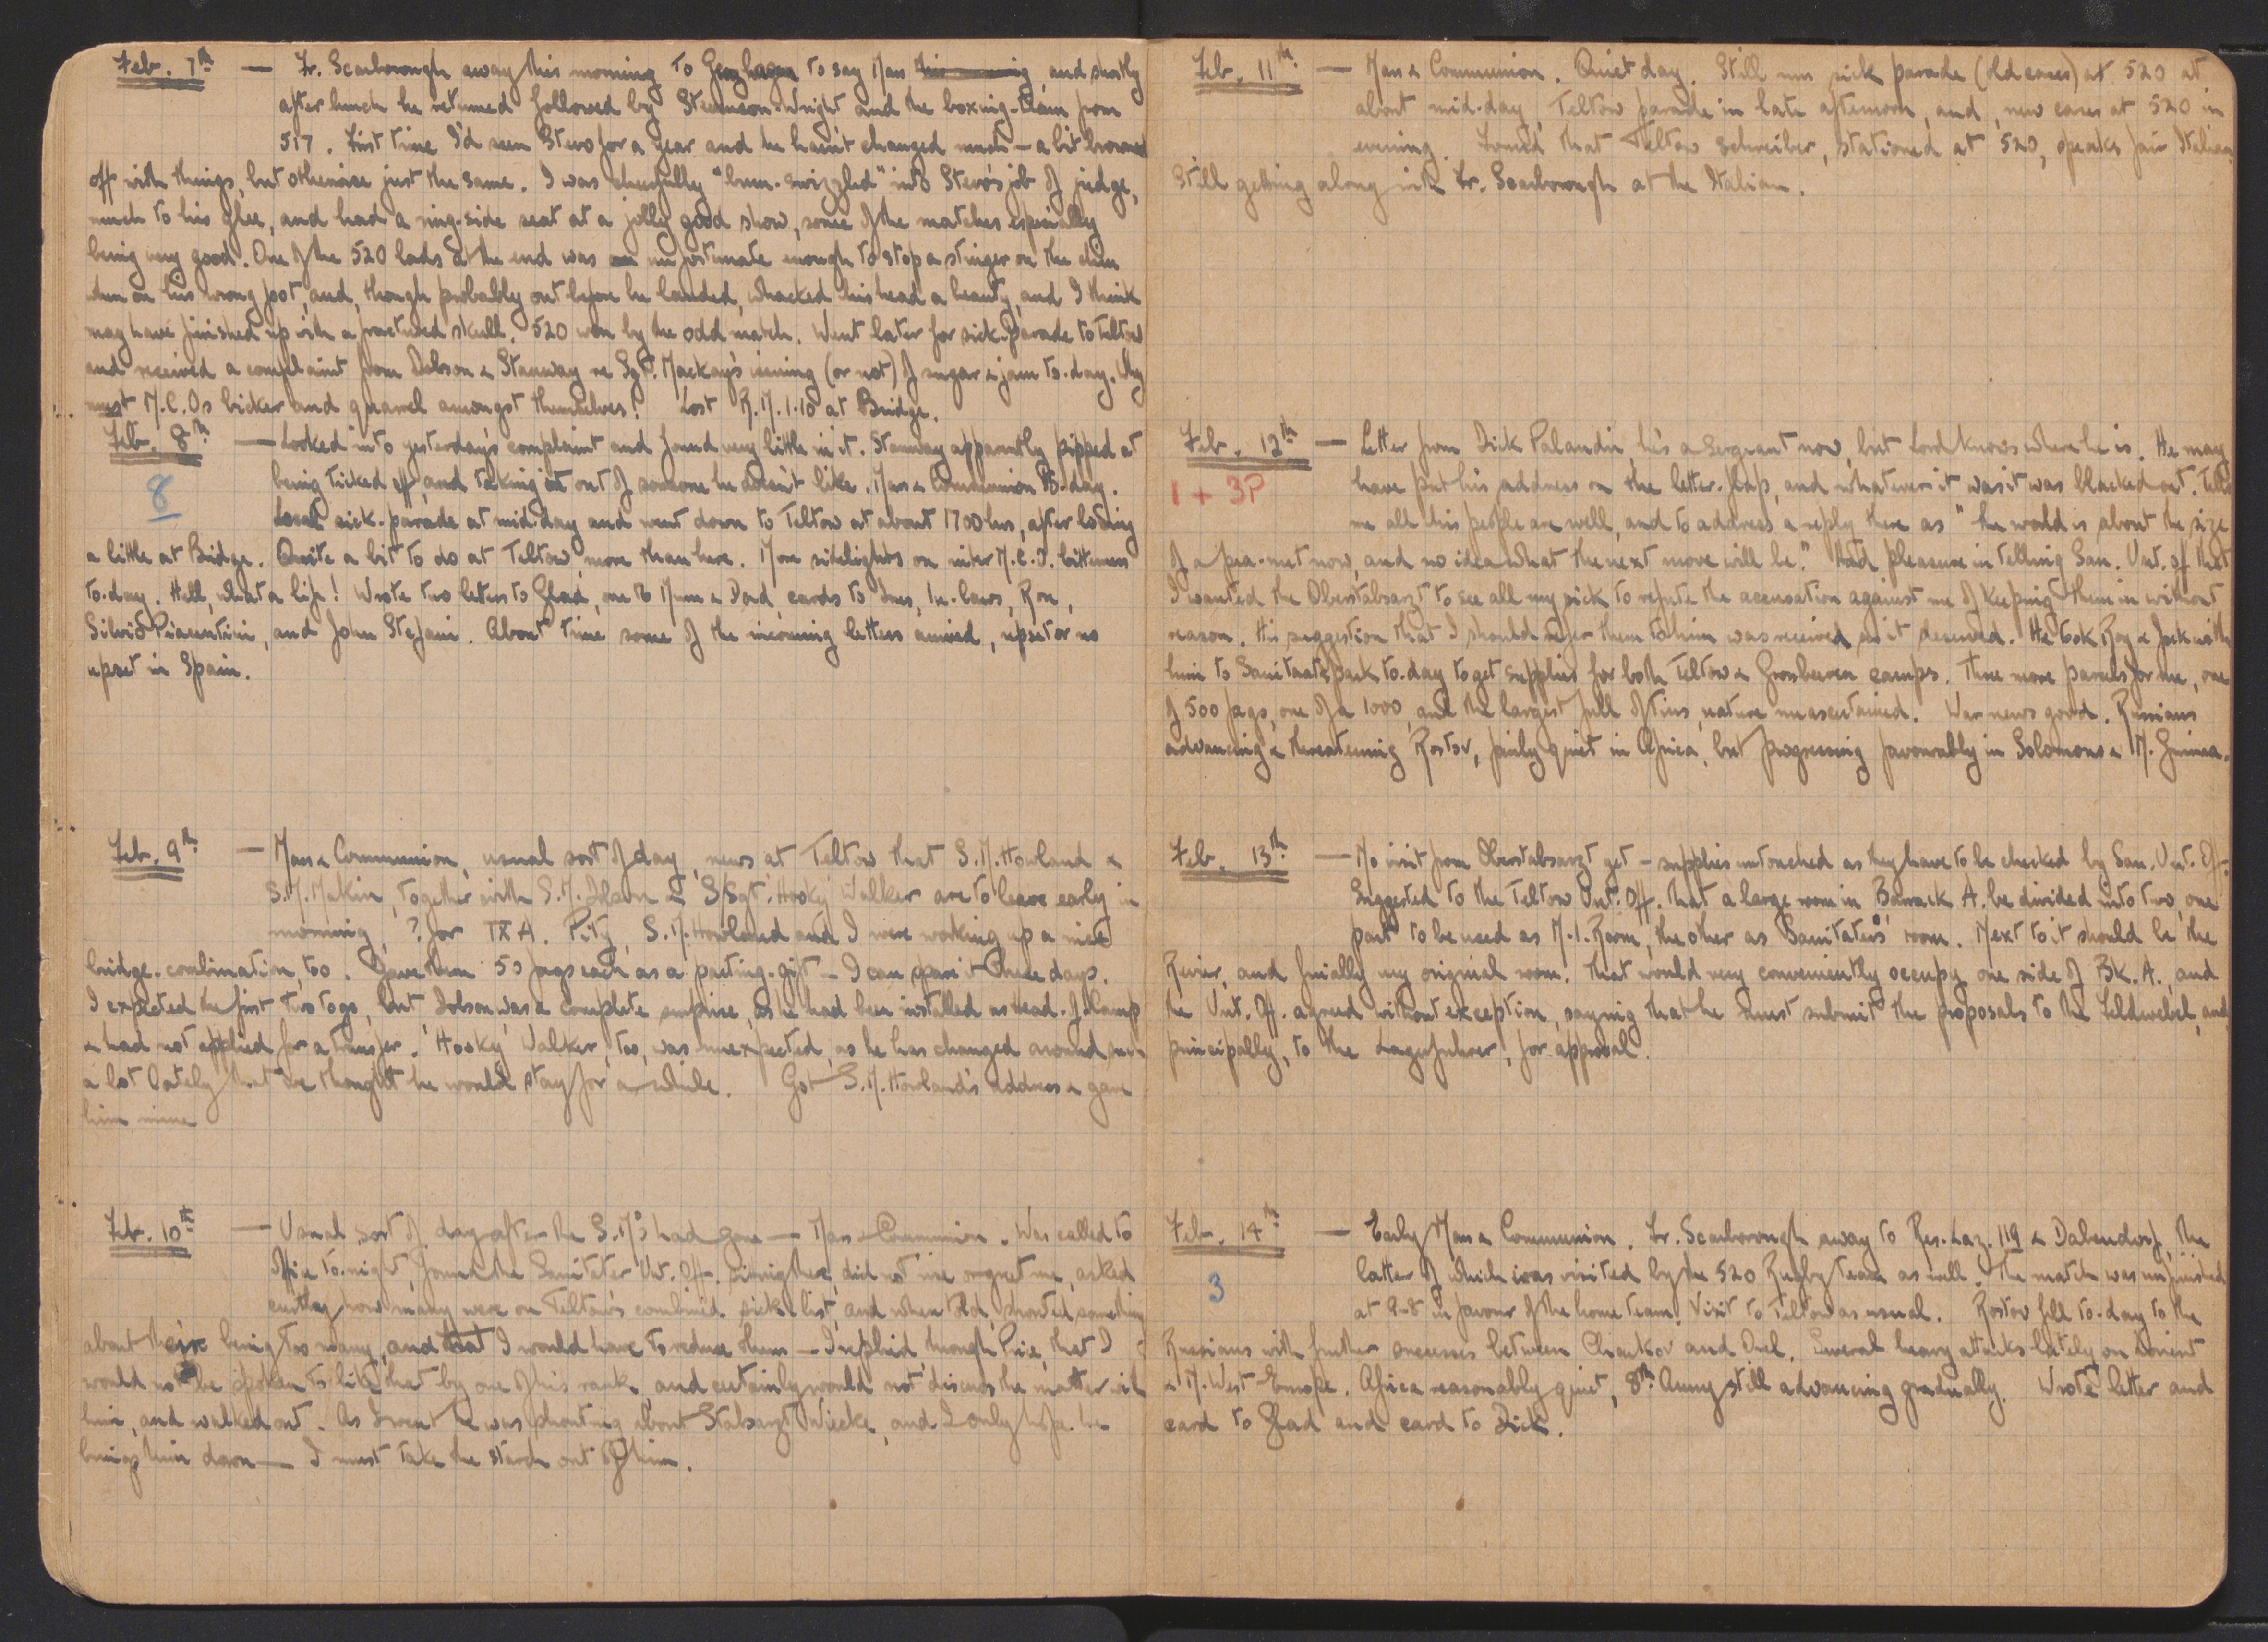 Feb. 7th — Fr. Scarborough away this morning to say Mass this morning, and shortly
after lunch he returned followed by Stevenson-Wright and the boxing-team from
517. First time I'd seen Stevo for a year and he hasn't changed much — a bit browned
off with things, but otherwise just the same. I was cheerfully "bum-swizzled" into Stevo's job of judge,
much to his glee, and had a ring-side seat at a jolly good show, some of the matches especially
being very good. One of the 520 lads at the end was unfortunate enough to stop a stinger on the chin
when on his wrong foot, and, though probably out before he landed, whacked his head a beauty, and I think
may have finished up with a fractured skull. 520 won by the odd match. Went later for sick-parade to Teltow
and received a complaint from Dobson & Stanway re Sgt. Mackay's issuing (or not) of sugar & jam to-day. Why
must N.C.Os bicker and quarrel amongst themselves! Lost R.M. 1.10 at Bridge.
Feb. 8th — Looked into yesterday's complaint and found very little in it. Stanway apparently pipped at
8
being ticked off, and taking it out of someone he doesn't like. Mass & Communion to-day.
Local sick-parade at mid-day and went down to Teltow at about 1700 hrs, after losing
a little at Bridge. Quite a bit to do at Teltow, more than here. More sidelights on inter N.C.O. bitterness
to-day. Hell, what a life! Wrote two letters to Glad, one to Mum & Dad, cards to Ines, In-laws, Ron,
Silvio Piacentini, and John Stefani. About time some of the incoming letters arrived, upset or no
upset in Spain.
Feb. 9th — Mass & Communion, usual sort of day, news at Teltow that S.M. Howland &
S.M. Makin, together with S.M. Dobson & S/Sgt. 'Hooky' Walker are to leave early in
morning, ? for IXA. Pity, S.M. Howland and I were working up a nice
bridge-combination, too. Gave them 50 fags each as a parting-gift — I can spare it these days.
I expected the first two to go, but Dobson was a complete surprise, as he had been installed as head of Camp
& had not applied for a transfer. 'Hooky' Walker, too, was unexpected, as he has changed around
a lot lately that we thought he would stay for a while. Got S.M. Howland's address & gave
him mine
Feb. 10th — Usual sort of day after the S.M's had gone — Mass & Communion. Was called to
Office to-night, found the Sanitater Unt. Off. sitting there, did not rise or greet me, asked
curtly how many were on Teltow's combined sick-list, and when told, shouted something
about there being too many, and that I would have to reduce them — I replied, through Price, that I
would not be spoken to like that by one of his rank, and certainly would not discuss the matter with
him, and walked out. As I went he was shouting about Stabsarzt Wiecke, and I only hope he
brings him down — I must take the starch out of him.
Feb. 11th — Mass & Communion. Quiet day. Still run sick parade (old cases) at 520 at
about mid-day, Teltow parade in late afternoon, and, new cases at 520 in
evening. Found that Teltow Schreiber, stationed at 520, speaks fair Italian.
Still getting along with Fr. Scarborough at the Italian.
Feb. 12th — Letter from Dick Palandin, he's a Sergeant now, but Lord knows where he is. He may
1 + 3P
have put his address on the letter-flap, and whatever it was it was blacked out. Tells
me all his people are well, and to address a reply there as "the world is about the size
of a pea-nut now, and no idea what the next move will be." Had pleasure in telling San. Unt. off that
I wanted the Oberstabsarzt to see all my sick to refute the accusation against me of keeping them in without
reason. His suggestion that I should refer them to him was received as it deserved. He took Roy & Jock with
him to Sanitatspark to-day to get supplies for both Teltow & Grosbeeren camps. Three more parcels for me, one
of 500 fags, one of a 1000, and the largest full of tins, nature unascertained. War news good. Russians
advancing & threatening Rostov, fairly quiet in Africa, but progressing favourably in Solomons & N. Guinea.
Feb. 13th — No visit from Oberstabsarzt yet — supplies untouched as they have to be checked by San. Unt. Off.
Suggested to the Teltow Unt. Off. that a large room in Barrack A. be divided into two, one
part to be used as M.I. Room, the other as Sanitaters' room. Next to it should be the
Revier, and finally my original room. That would very conveniently occupy one side of Bk. A., and
the Unt. Off. agreed without exception, saying that he must submit the proposals to the Feldwebel, and
principally, to the Lagerfuhrer, for approval.
Feb. 14th — Early Mass & Communion. Fr. Scarborough away to Res. Laz. 119 & Dabendorf, the
3
latter of which was visited by the 520 Rugby team as well. The match was unfinished
at 9-8 in favour of the home team. Visit to Teltow as usual. Rostov fell to-day to the
Russians with further successes between Charkov and Orel. Several heavy attacks lately on Lorient
& N. West Europe. Africa reasonably quiet, 8th Army still advancing gradually. Wrote letter and
card to Glad and card to Dick.